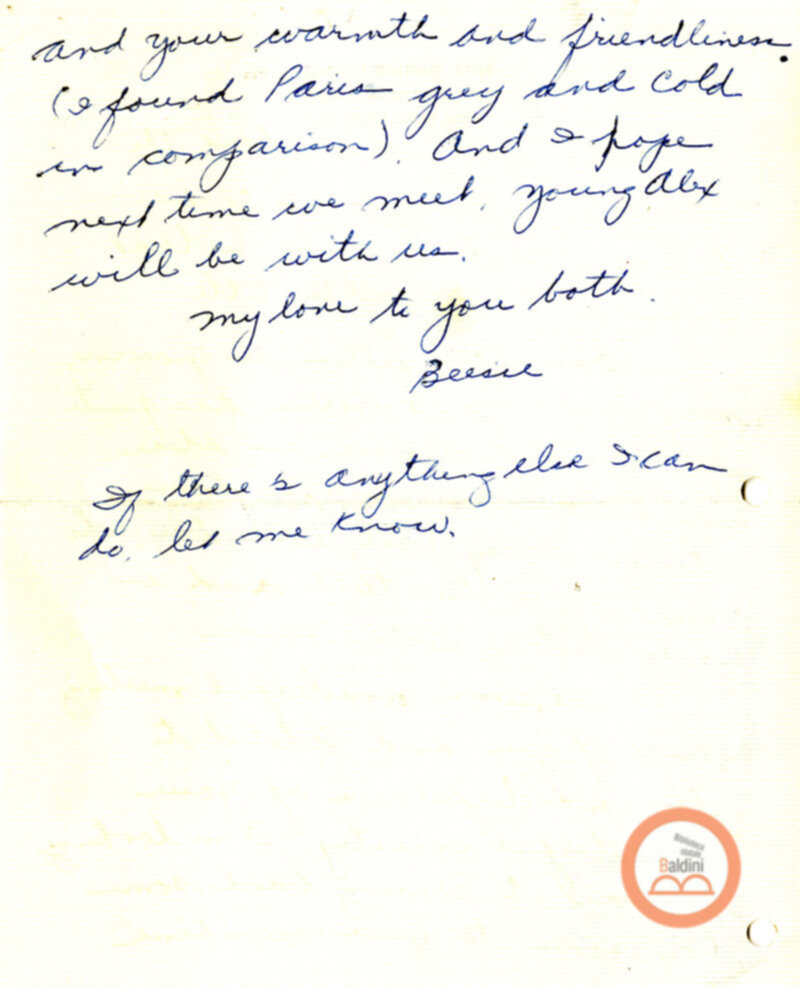 and your warmth and friendliness.
(I found Paris grey and cold
in comparison). And I hope
next time we meet, young Alex
will be with us.
My love to you both.
Bessie
If there's anything else I can
do, let me know.
Biblioteca
statale
Baldini